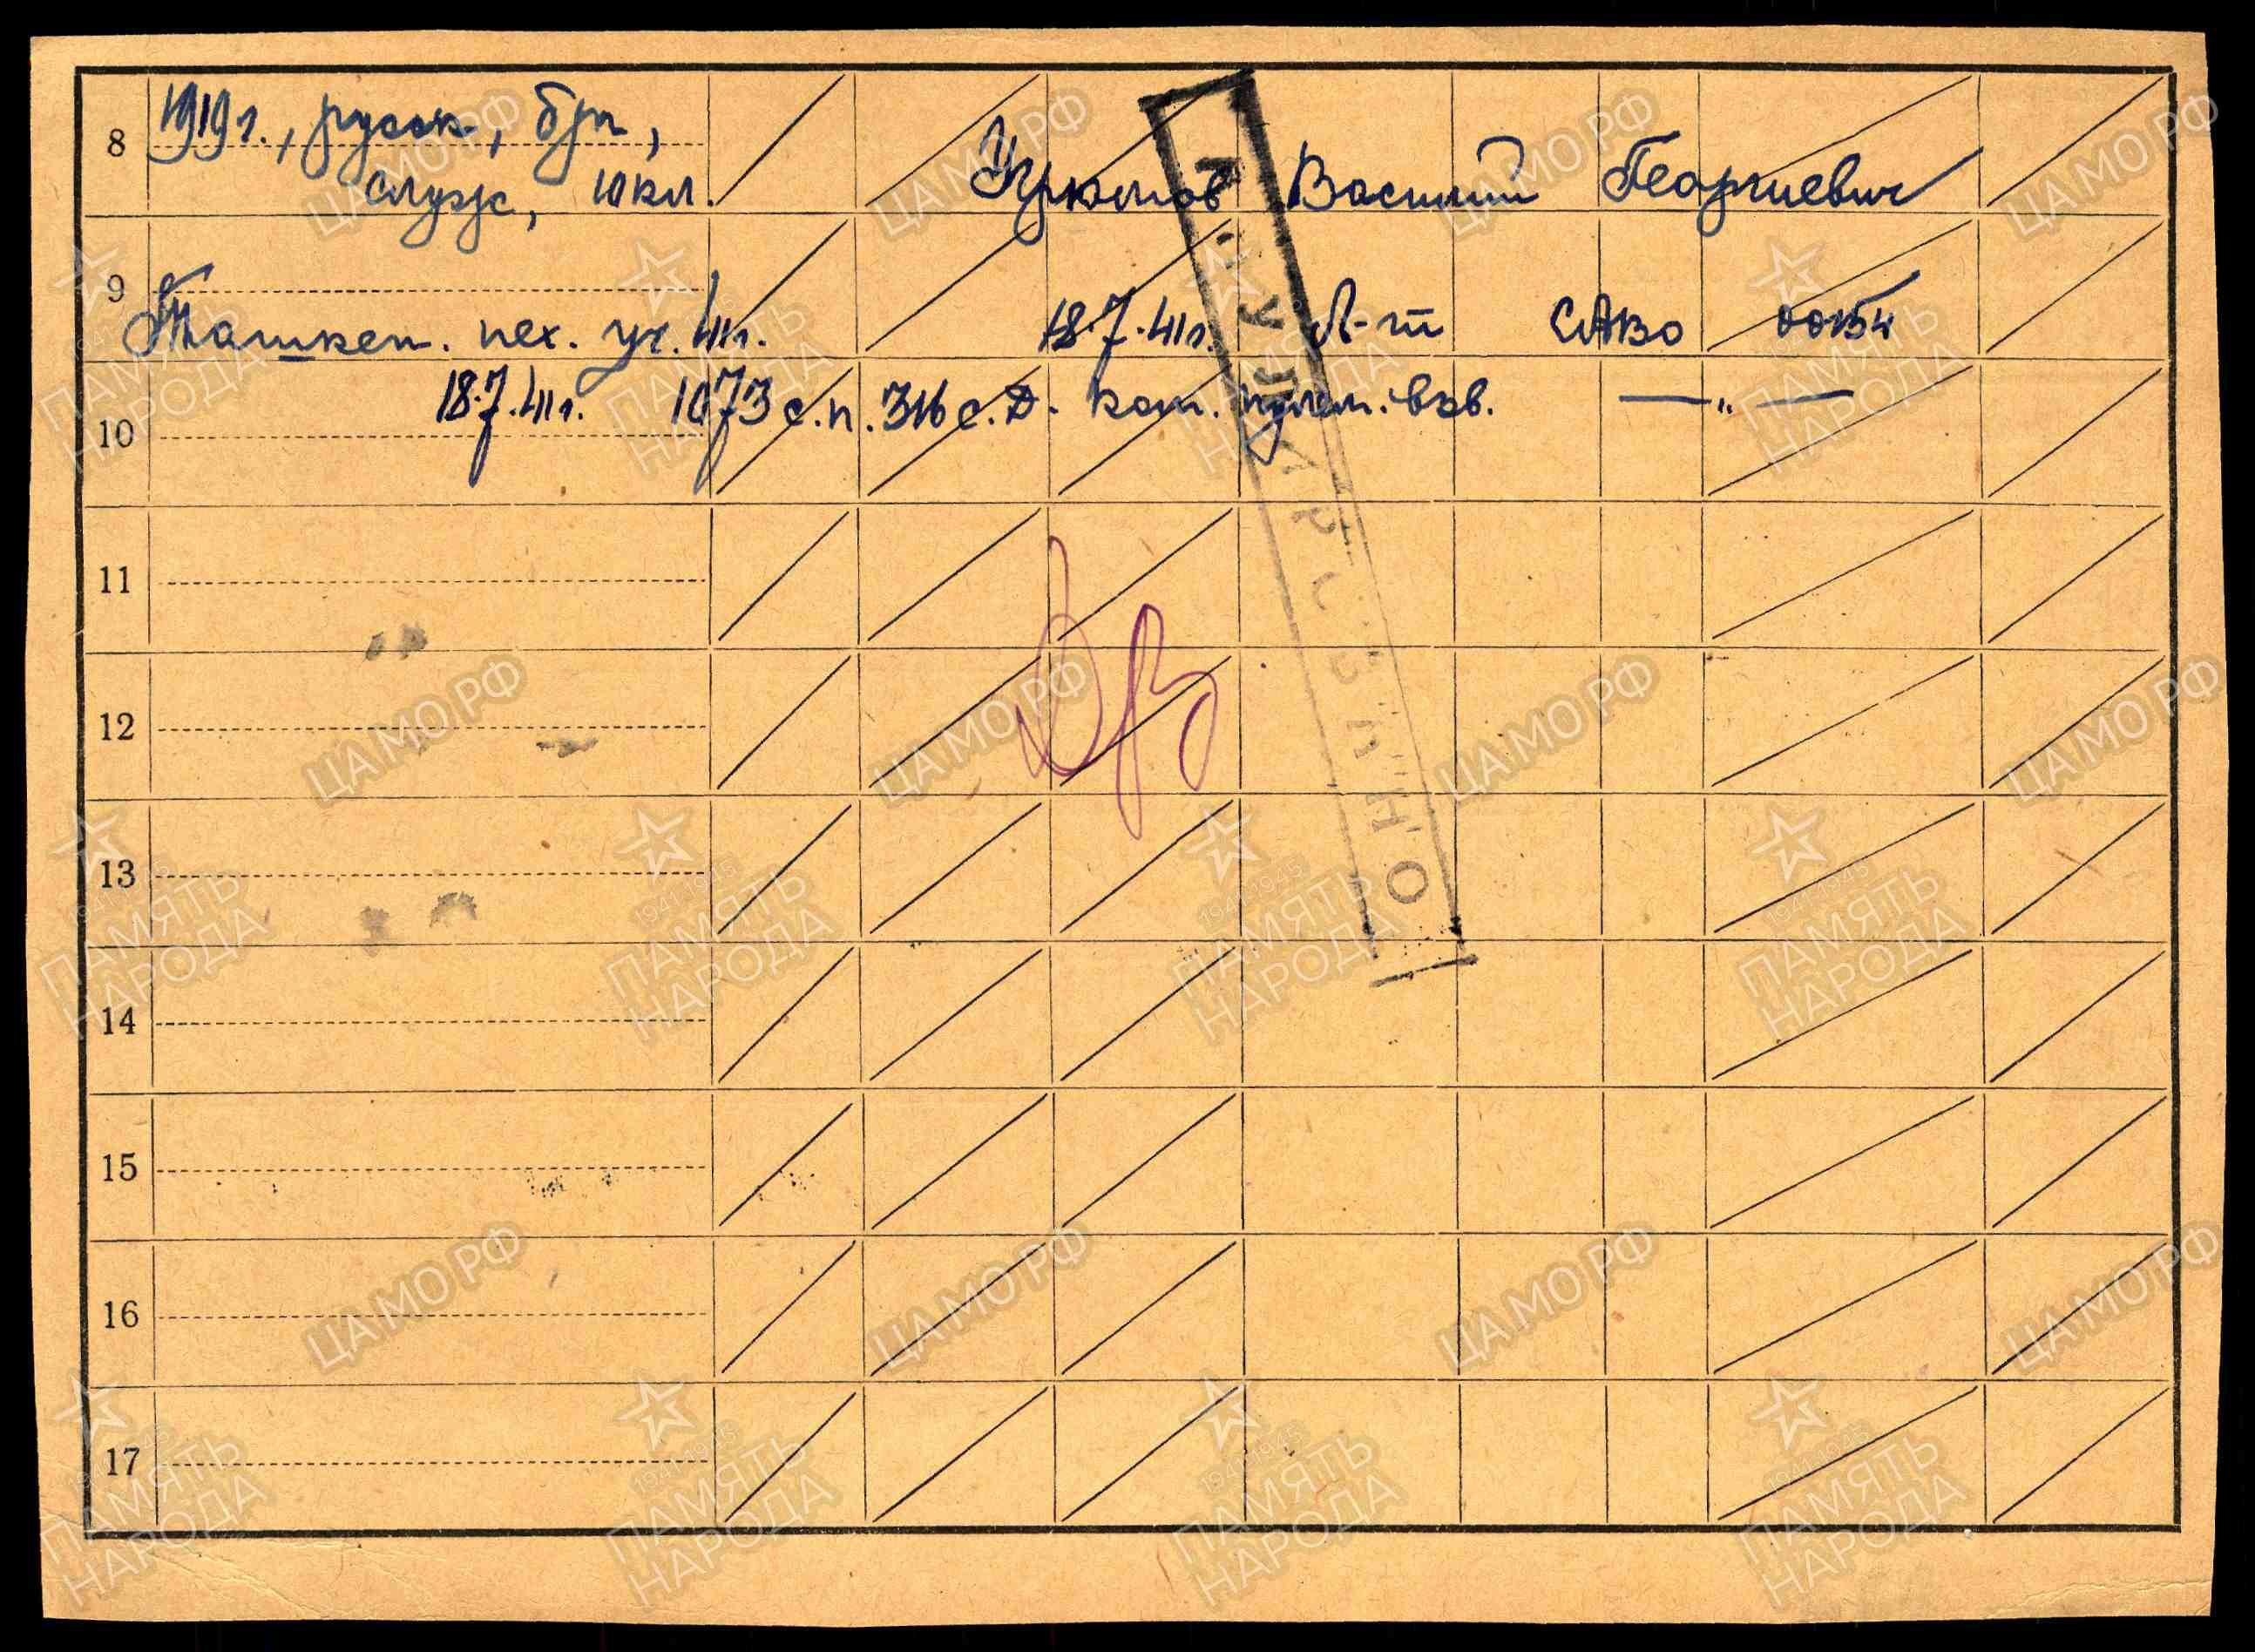 8 1919 г., русск, б/п, Угрюмов Василий Георгиевич
служ, 10 кл.
9
Ташкен. пех. уч. 41 г. 18.7.41 г. Л-т САВО 00154
18.7.41 г. 1073 с.п. 316 с.д. ком. пулем. взв. —„—
10
11
12
13
14
15
16
17
КАНЦЕЛЯРСКАЯ
ЦАМО.РФ
ПАМЯТЬ
НАРОДА
1941-1945